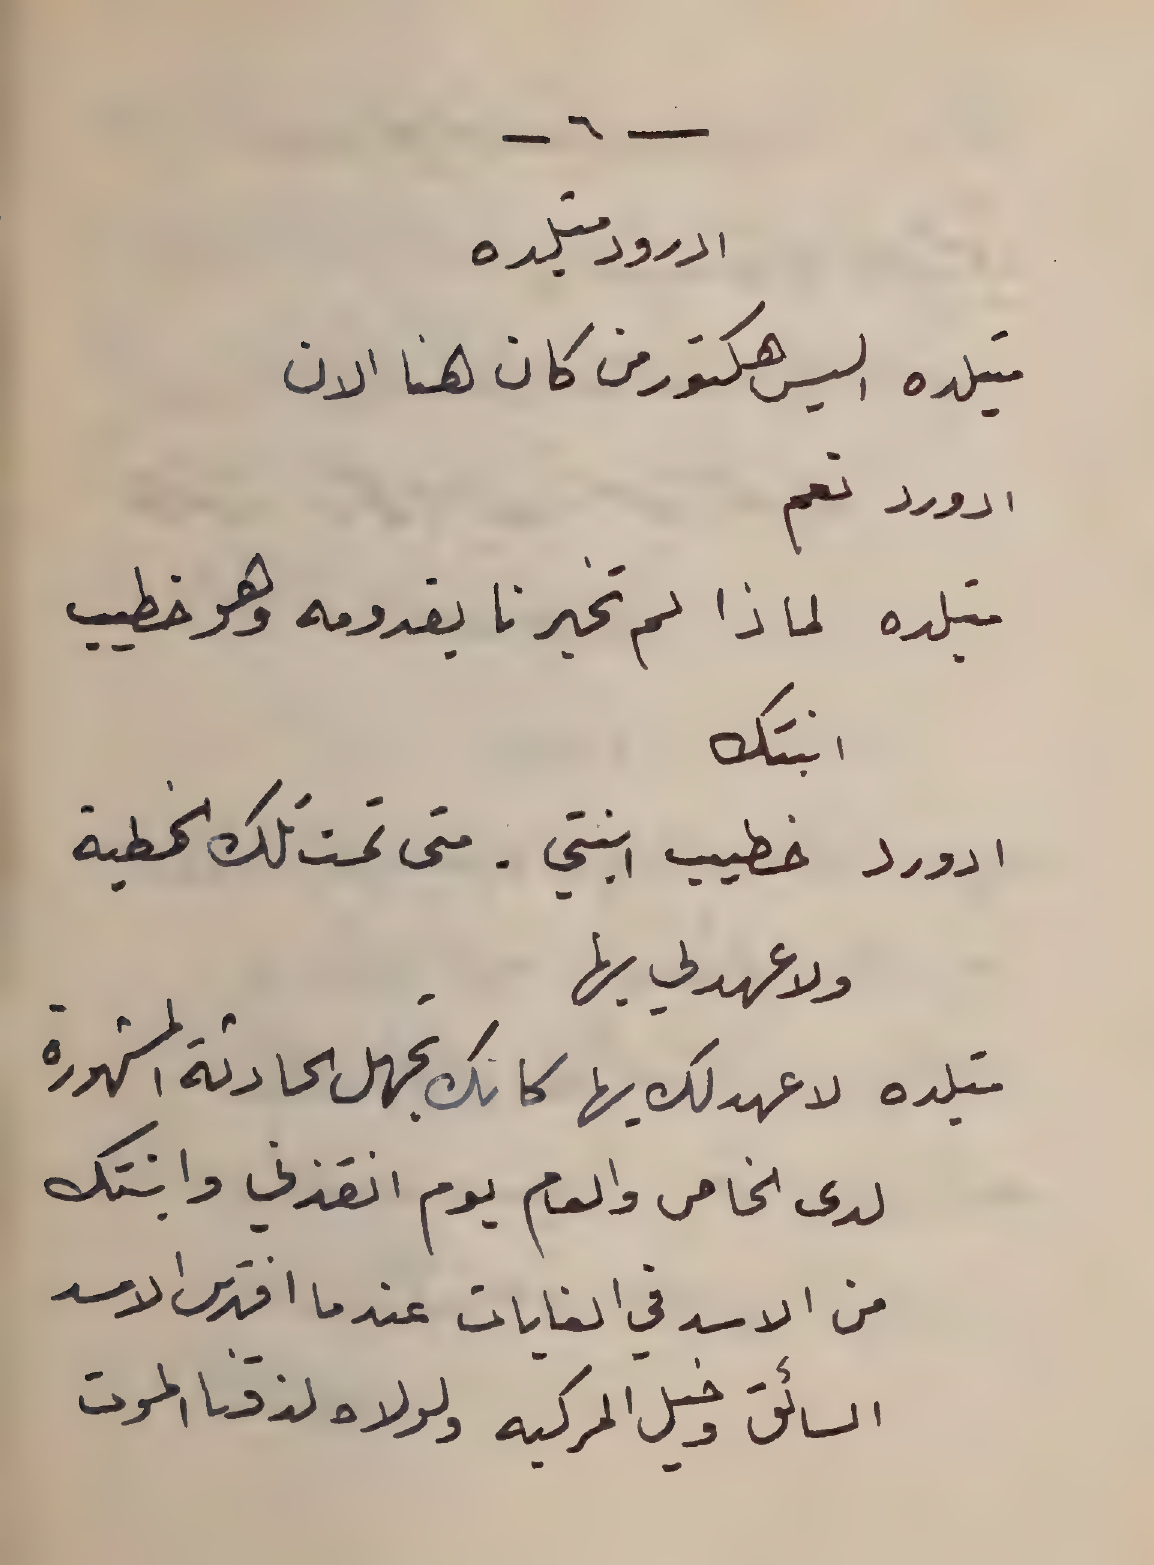 — ٦ —
ادرود متيلده
متيلده اليس هكتور من كان هنا الان
ادورد نعم
متيلده لماذا لم تخبرنا بقدومه وهو خطيب
ابنتك
ادورد خطيب ابنتي . متى تمت تلك الخطبة
ولا عهد لي بها
متيلده لا عهد لك بها كانك تجهل الحادثة المشهورة
لدى الخاص والعام يوم انقذني وابنتك
من الاسد في الغابات عندما افترس الاسد
السائق وخيل المركبه ولولاه لذقنا الموت